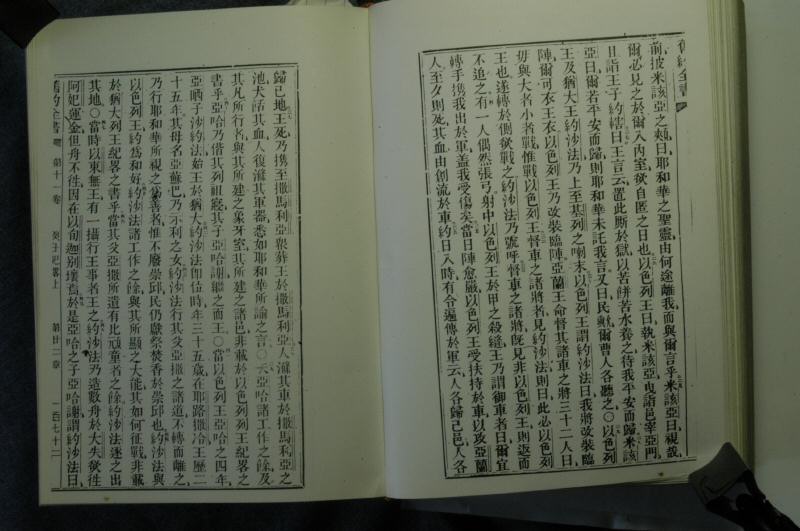 舊約全書
前披米該亞之頰曰耶和華之聖靈由何途離我而與爾言乎米該亞曰視哉
爾必見之於爾入內室欲自匿之日也以色列王曰執米該亞曳詣邑宰亞門
且詣王子約轄曰王言云置此厮於獄以苦餅苦水養之待我平安而歸米該
亞曰爾若平安而歸則耶和華未託我言又曰民歟爾曹人各聽之○以色列
王及猶大王約沙法乃上至基列之喇末以色列王謂約沙法曰我將改裝臨
陣爾可衣王衣以色列王乃改裝臨陣亞蘭王命督其諸車之將三十二人曰
毋與大者小者戰惟戰以色列王督車之諸將者見約沙法則曰此必以色列
王也遂轉於側欲戰之約沙法乃號呼督車之諸將既見非以色列王則返而
不追之有一人偶然張弓射中以色列王於甲之殺縫王乃謂御車者曰爾宜
轉手攜我出於軍蓋我受傷矣當日陣愈嚴以色列王受扶持於車以攻亞蘭
人至夕則死其血由創流於車約日入時有令遍傳於軍云人各歸己邑人各
歸己地王死乃攜至撒馬利亞衆葬王於撒馬利亞人滌其車於撒馬利亞之
池犬舐其血人復滌其軍器悉如耶和華所諭之言○夫亞哈諸工作之餘及
其凡所行者與其所建之象牙室其所建之諸邑非載於以色列王紀畧之
書乎亞哈乃偕其列祖寢其子亞哈謝繼之而王○當以色列王亞哈之四年
亞哂子約沙法始王於猶大約沙法卽位時年三十五歲在耶路撒冷王歷二
十五年其母名亞蘇巴乃示利之女約沙法行其父亞撒之諸道不轉而離之
乃行耶和華所視之為善者惟不廢崇邱民仍獻祭焚香於崇邱也約沙法與
以色列王約為和好約沙法諸工作之餘與其所顯之大能其如何征戰非載
於猶大列王紀畧之書乎當其父亞撒所遺有比頑童者之餘約沙法逐之出
其地○當時以東無王有一攝行王事者王之約沙法乃造數舟於大失欲往
阿妃運金但舟不往因在以旬迦別壞焉於是亞哈之子亞哈謝謂約沙法曰
舊約全書 第十一卷 列王紀畧上 第廿二章 一百七十二